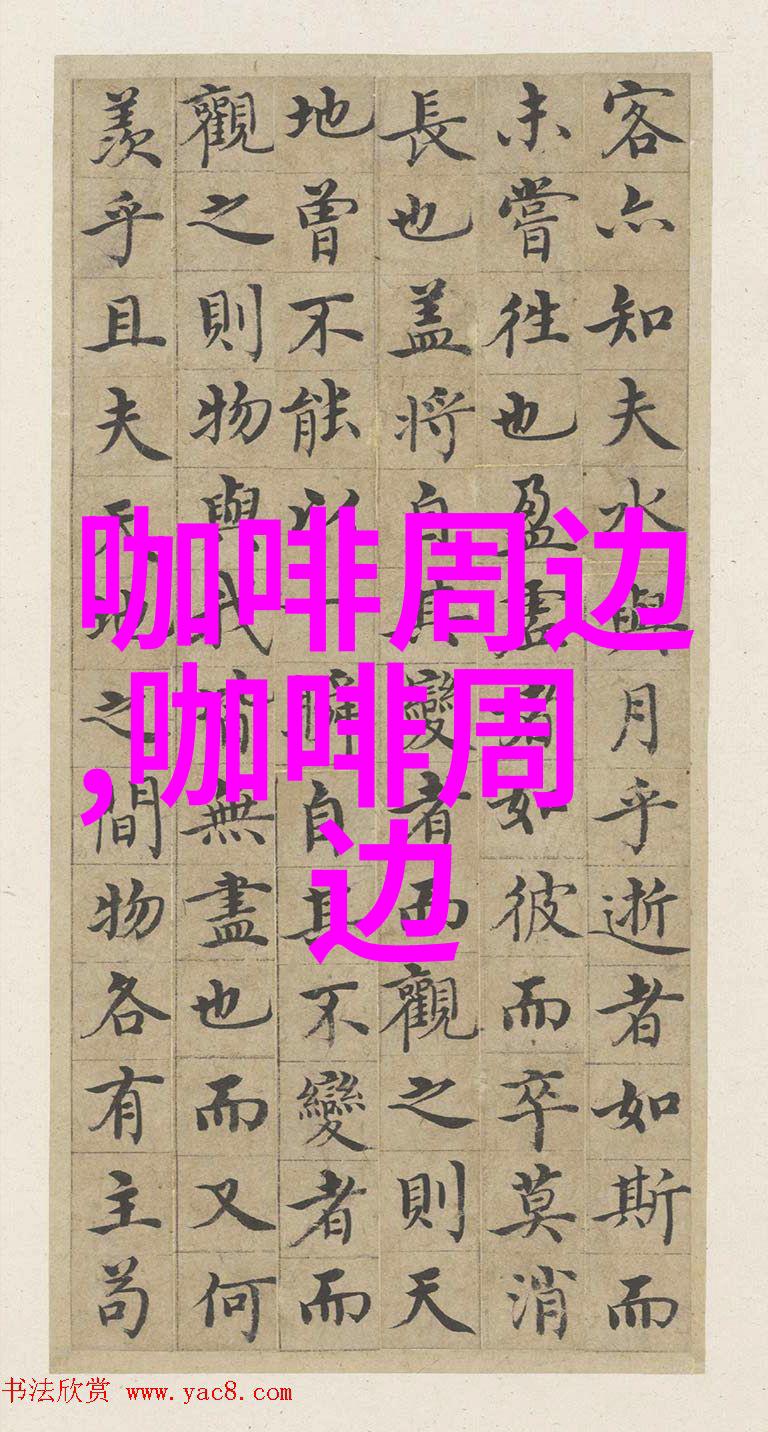 客亦知夫水與月乎逝者如斯而
未嘗往也盈虛者如彼而卒莫消
長也盖将自其變者而觀之則天
地曾不能以一瞬自其不變者而
觀之則物與我皆無盡也而又何
羨乎且夫天地之間物各有主苟
咖啡周边
,咖啡周
边
书法欣赏 www.yac8.com